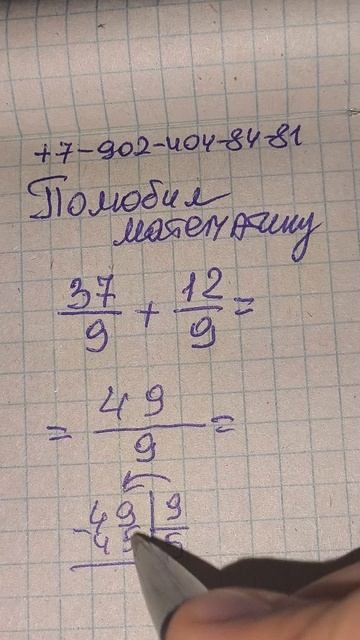 +7-902-404-84-81
Полюбил
математику
37/9 + 12/9 =
= 49/9 =
49 | 9
- 45 | 5